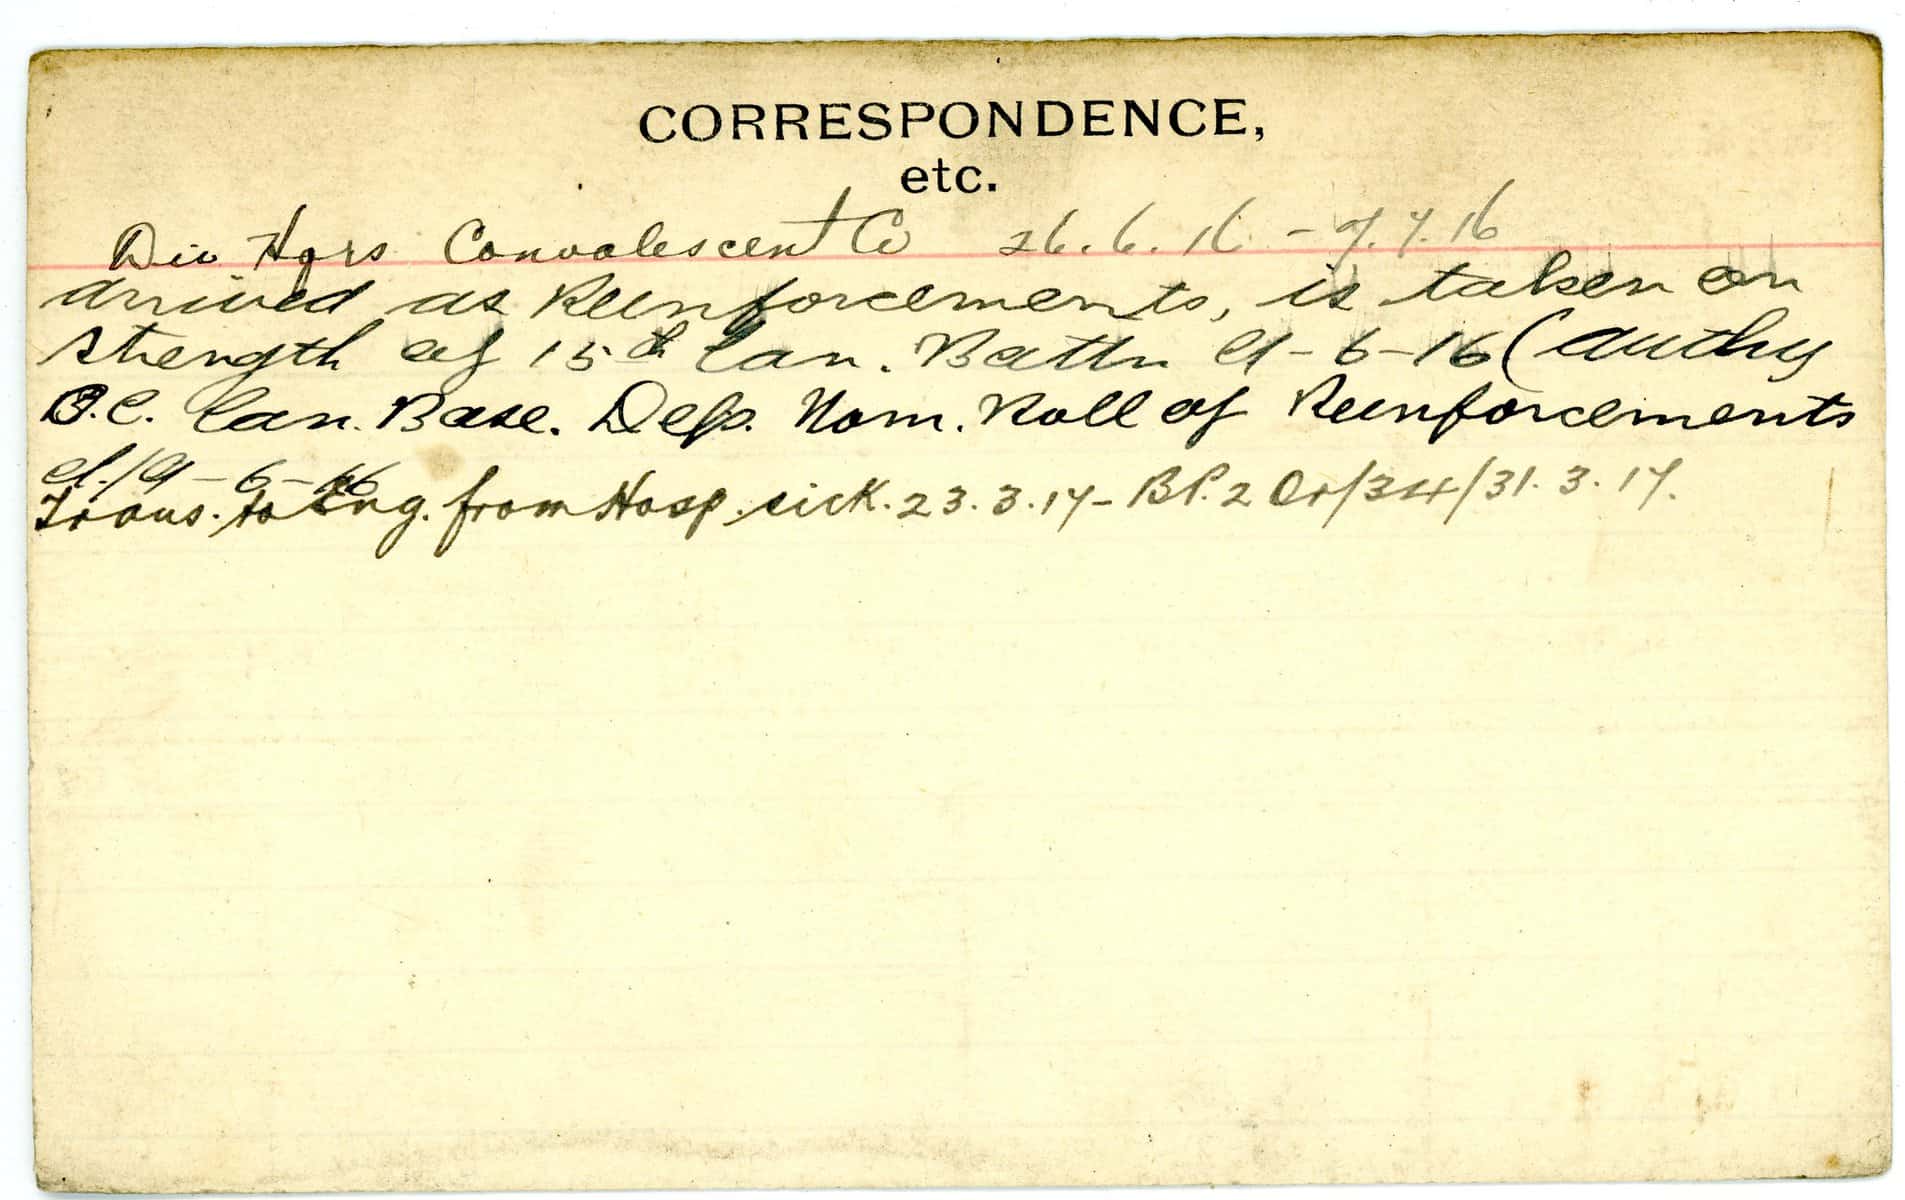 CORRESPONDENCE,
etc.
Div Hqrs Convalescent Co 26.6.16 - 7.7.16
arrived as Reinforcements, is taken on
strength of 15th Can. Battn 9-6-16 (Authy
O.C. Can. Base. Dep. Nom. Roll of Reinforcements
d/9-6-16
Trans. to Eng. from Hosp. sick. 23.3.17 - BP. 2 Or/34/31.3.17.